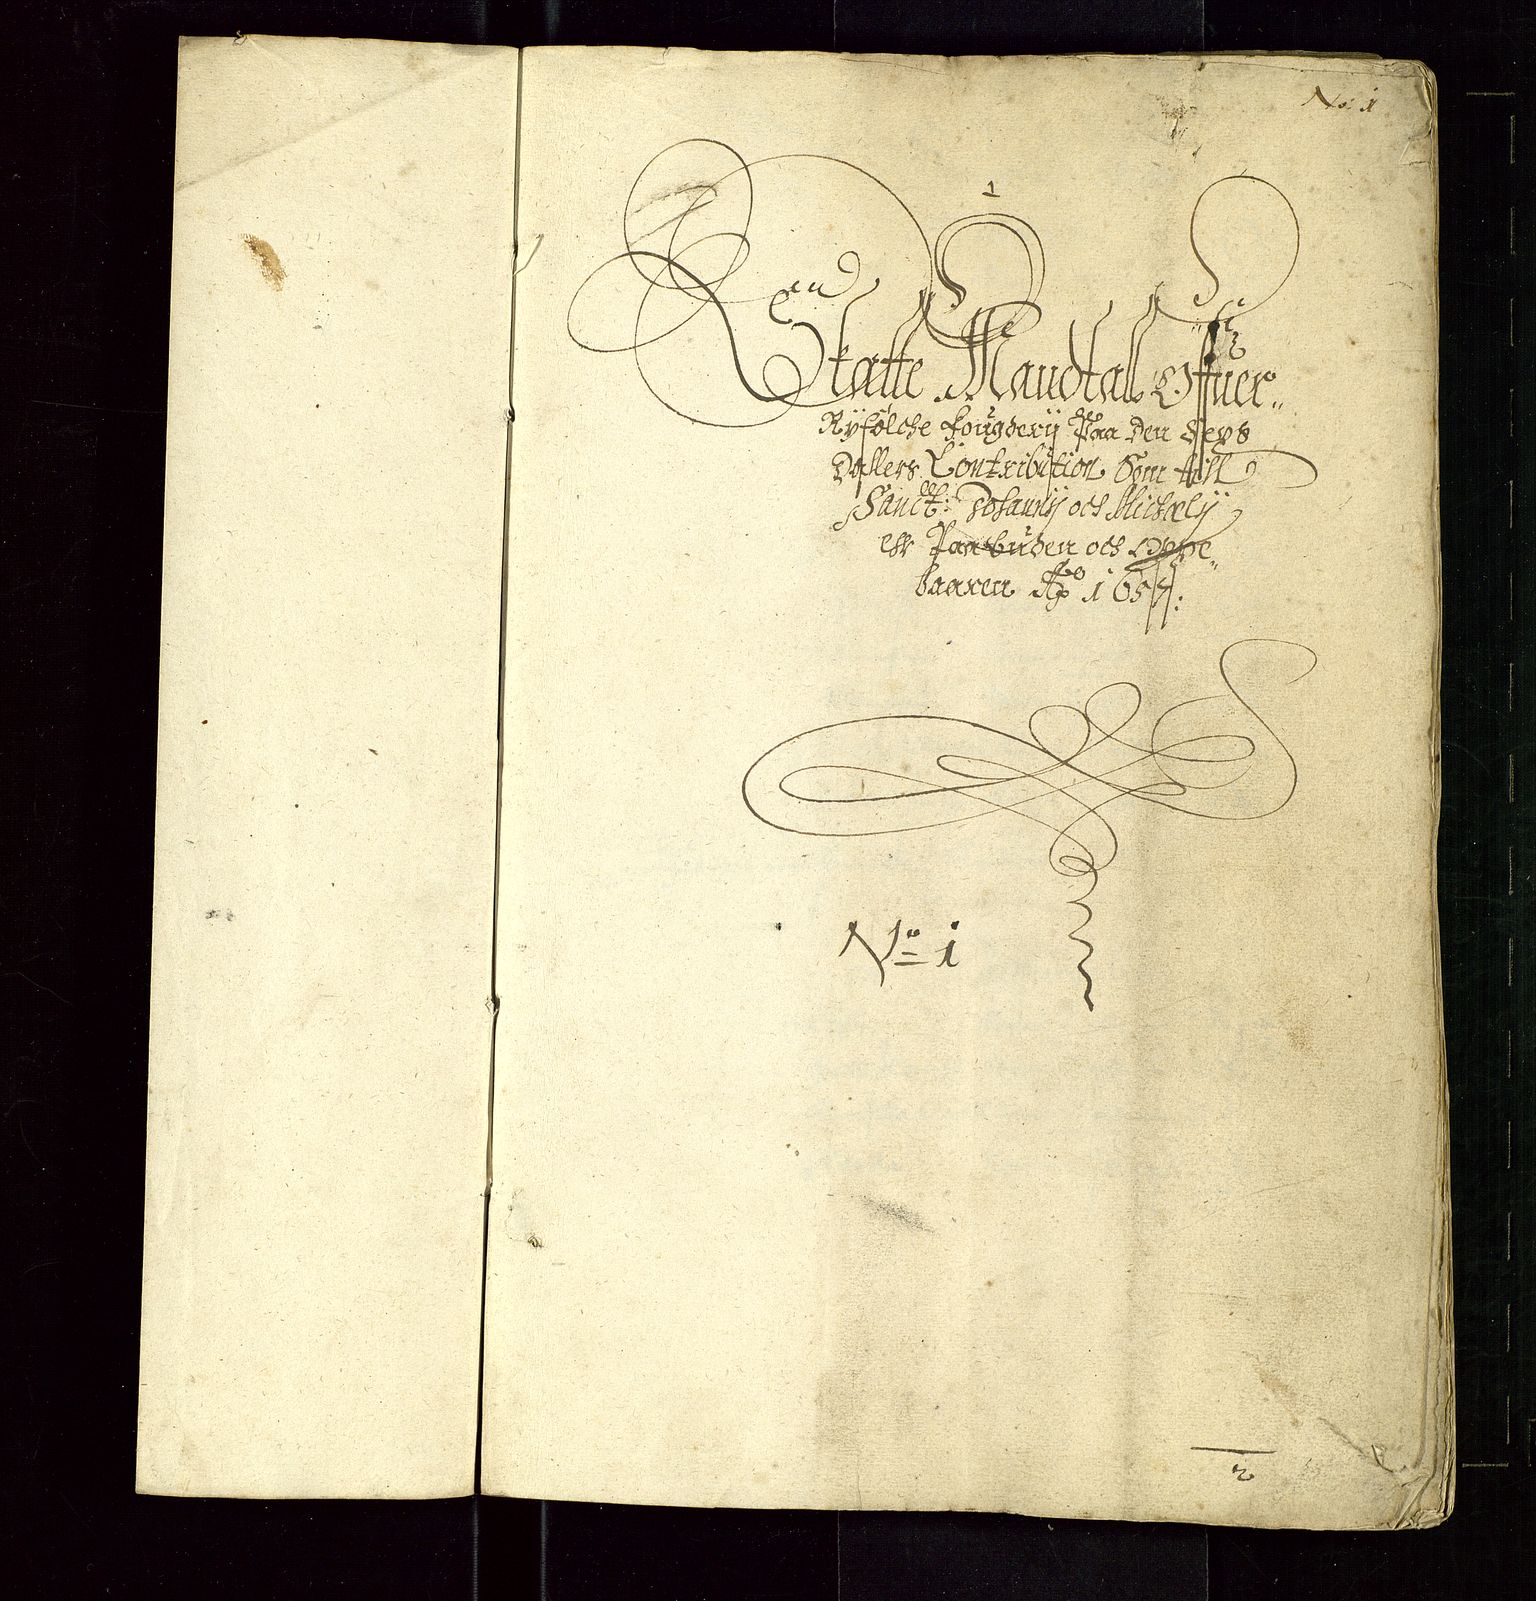 No: 1
1
Een
Skatte Mandtall Offuer
Ryfølche Fougderij Paa Den Sex
Dallers Contribution Som till
Sanct: Johannij och Michælij
er Paabuden och Oppe
baaren Ao 1657:
No 1
2